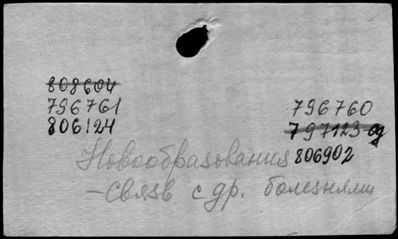 808604
796761
806124
796760
797123 од
806902
Новообразования
-связь с др. болезнями